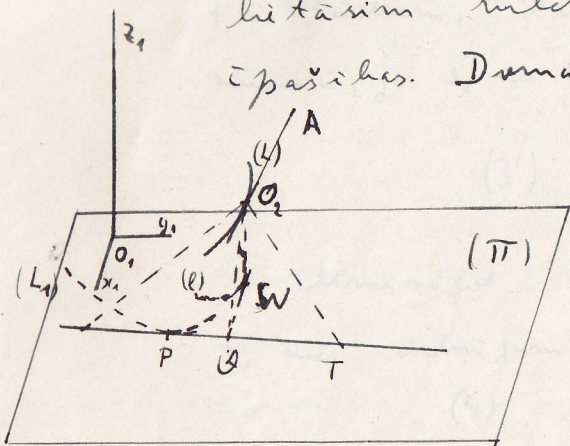 lietāsim
īpašības. Doma
z₁
A
(L)
O₂
(3')
y₁
(Π)
O₁
(L₁)
x₁
(l)
W
P Q T
(4)